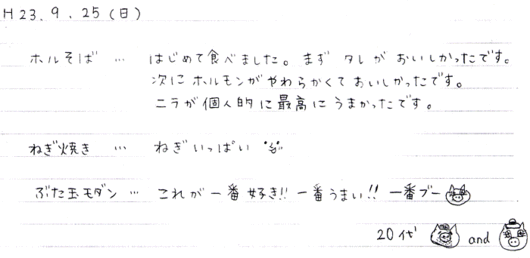 H23.9.25(日)
ホルそば … はじめて食べました。まず タレが おいしかったです。
次に ホルモンがやわらかくて おいしかったです。
ニラが個人的に最高にうまかったです。
ねぎ焼き … ねぎいっぱい
ぶた玉モダン … これが一番好き!! 一番うまい!! 一番ブー
20代 and